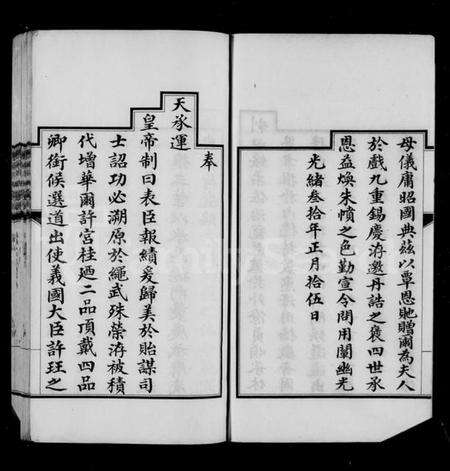 母儀庸昭國典茲以覃恩貤贈爾為夫人
於戲九重錫慶洊邀丹誥之褒四世承
恩益煥朱幩之色勤宣令聞用闡幽光
光緒叁拾年正月拾伍日
奉
天承運
皇帝制曰表臣報績爰歸美於貽謀司
士詔功必溯原於繩武殊榮洊被積
代增華爾許宮桂廼二品頂戴四品
卿銜候選道出使義國大臣許珏之